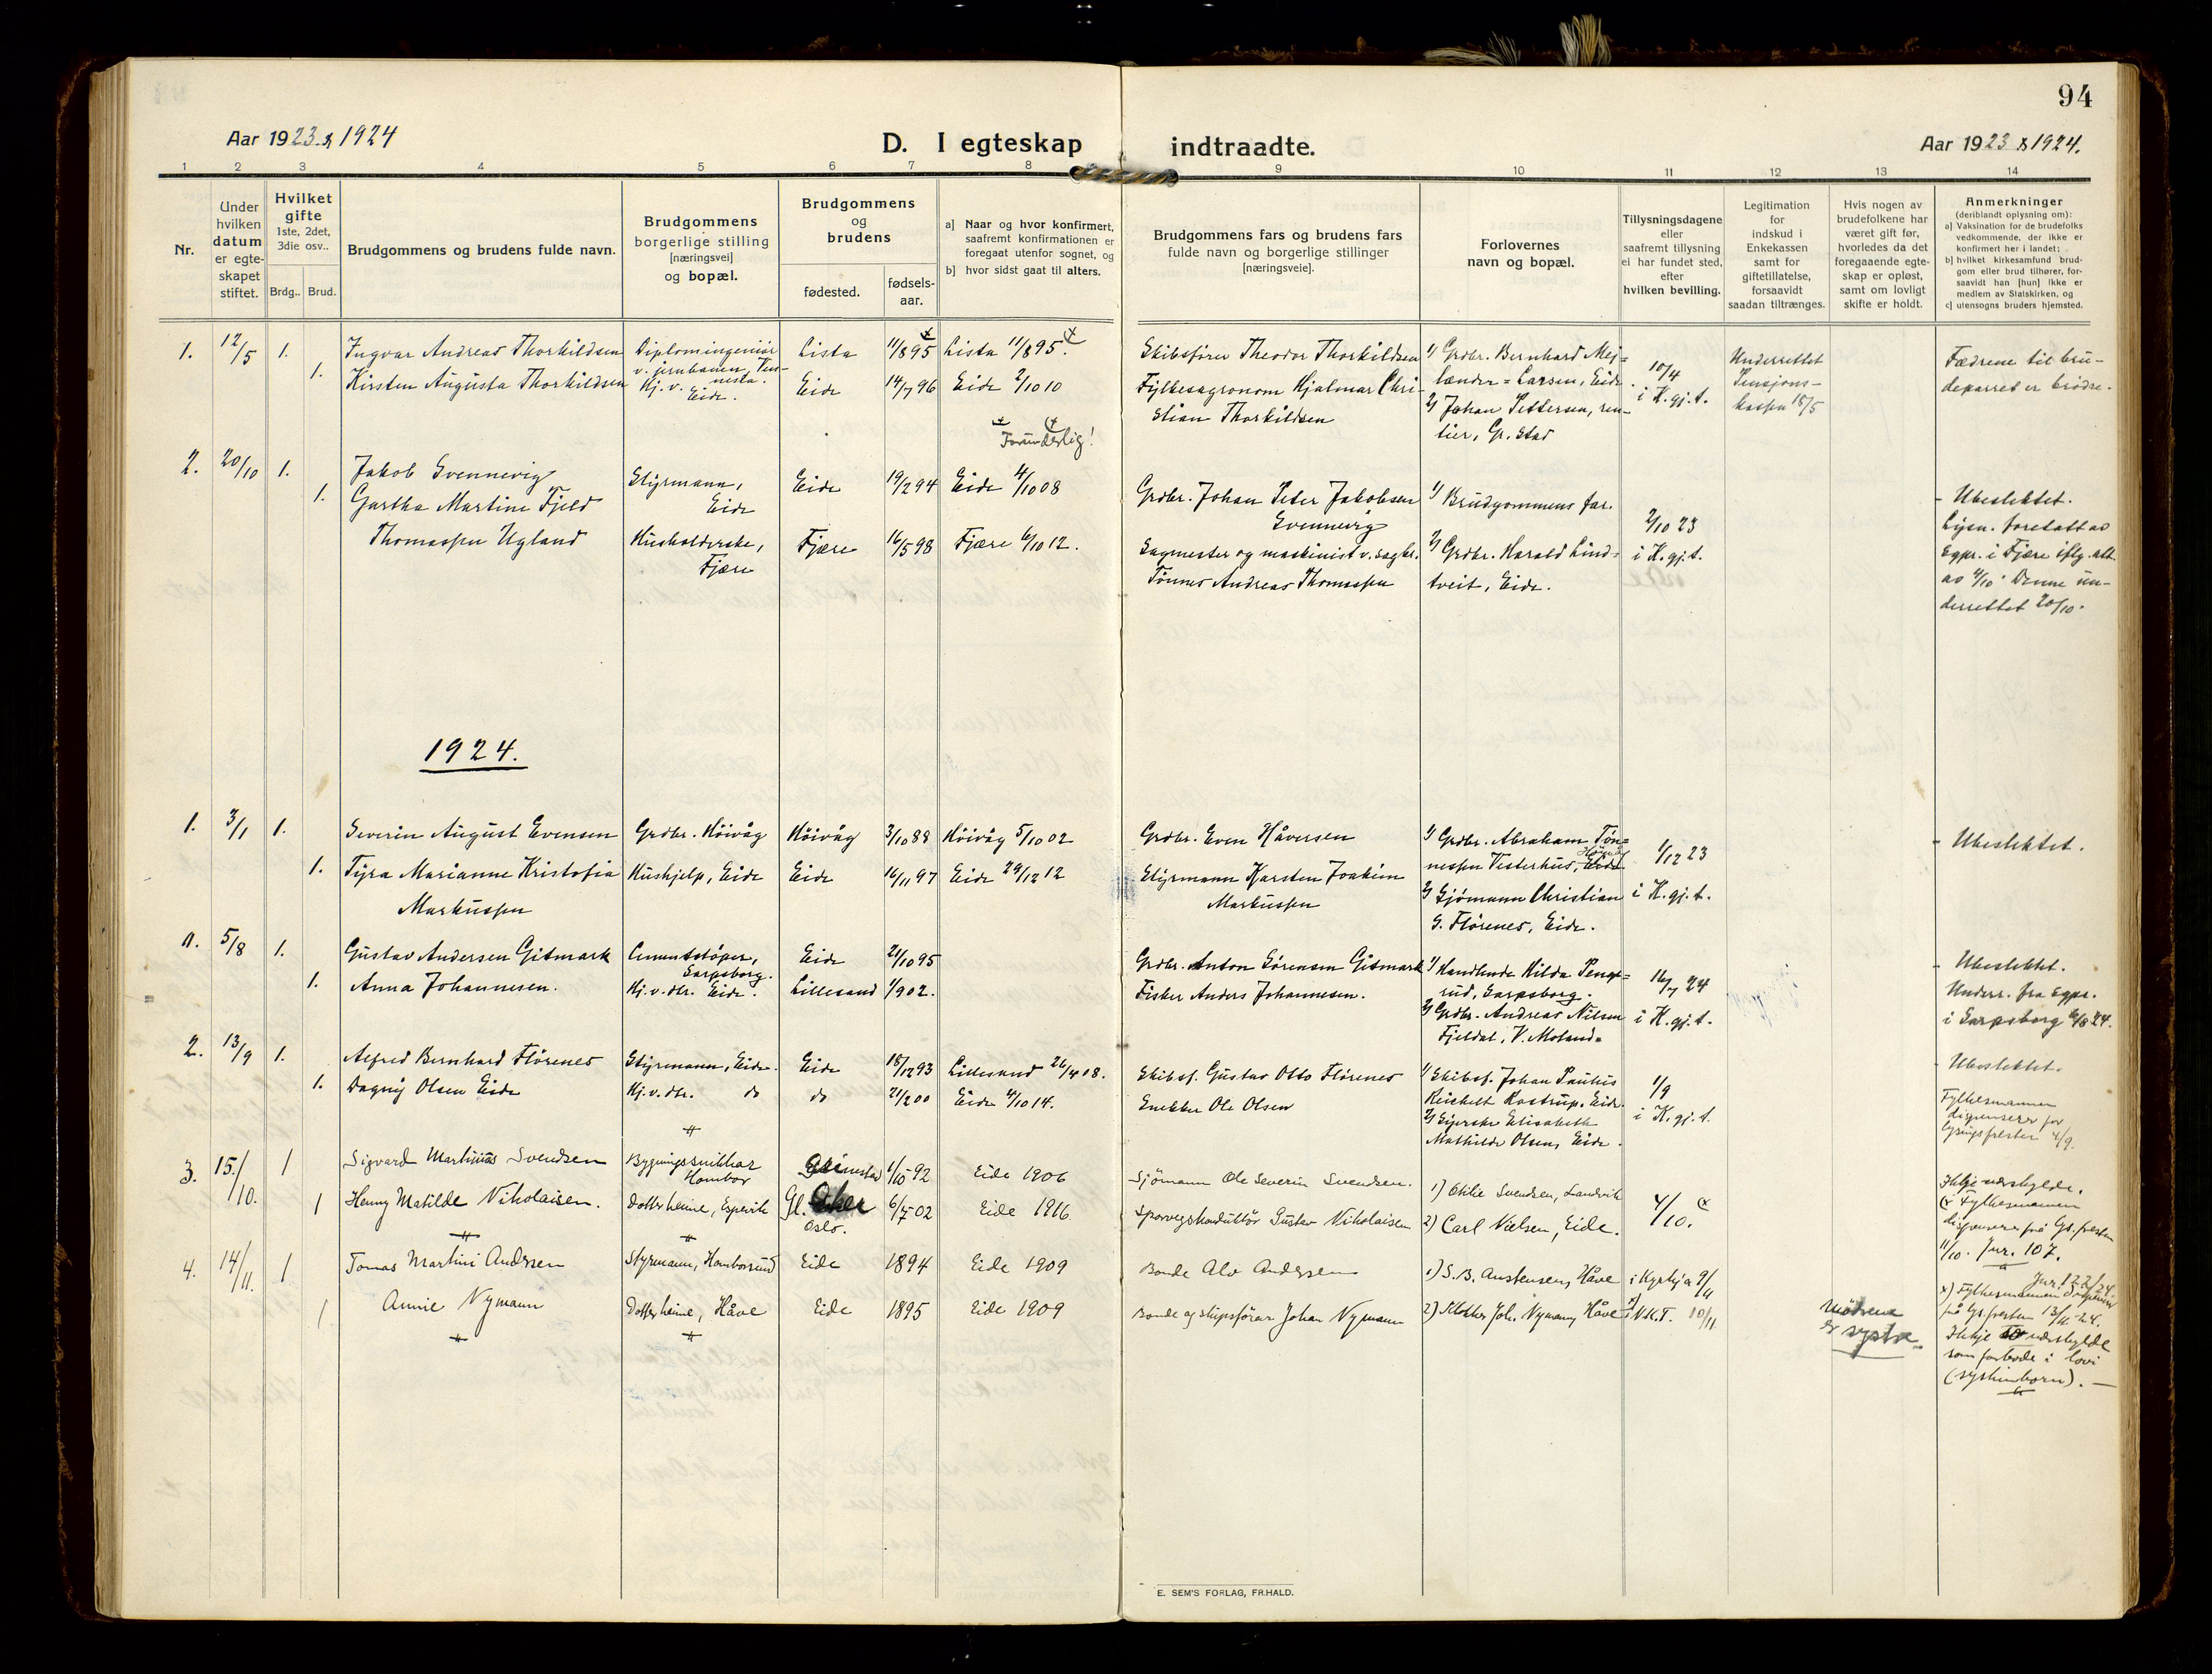 94
Aar 1923 & 1924
D. I egteskap indtraadte.
Aar 1923 & 1924.
1 2 3 4 5 6 7 8 9 10 11 12 13 14
Nr.
Under hvilken datum er egte-skapet stiftet.
Hvilket gifte 1ste, 2det, 3die osv..
Brdg.. Brud.
Brudgommens og brudens fulde navn.
Brudgommens borgerlige stilling [næringsvei] og bopæl.
Brudgommens og brudens
fødested.
fødsels-aar.
a] Naar og hvor konfirmert, saafremt konfirmationen er foregaat utenfor sognet, og
b] hvor sidst gaat til alters.
Brudgommens fars og brudens fars fulde navn og borgerlige stillinger [næringsveie].
Forlovernes navn og bopæl.
Tillysningsdagene eller saafremt tillysning ei har fundet sted, efter hvilken bevilling.
Legitimation for indskud i Enkekassen samt for giftetillatelse, forsaavidt saadan tiltrænges.
Hvis nogen av brudefolkene har været gift før, hvorledes da det foregaaende egte-skap er opløst, samt om lovligt skifte er holdt.
Anmerkninger
(deriblandt oplysning om):
a] Vaksination for de brudefolks vedkommende, der ikke er konfirmert her i landet;
b] hvilket kirkesamfund brud-gom eller brud tilhører, for-saavidt han [hun] ikke er medlem av Statskirken, og
c] utensogns bruders hjemsted.
1. 12/5 1. Ingvar Andreas Thorkildsen Diplomingeniör v. jernbanen, Lista 11/8 95 Lista 11/8 95. Skibsfører Theodor Thorkildsen 1) Grdbr. Bernhard Mej=lænder=Larsen, Eide. 10/4 i K.gj.t. Underrettet Pensjons-kassen 18/5 Fædrene til bru-deparret er brödre.
1. Kirsten Augusta Thorkildsen Hj. v. Eide. Eide 14/7 96 Eide 2/10 10 Fylkesagronom Hjalmar Chri-stian Thorkildsen 2) Johan Pettersen, ren-tier, Gr.stad
Forunderlig!
2. 20/10 1. Jakob Svennevig Styrmann, Eide Eide 19/2 94 Eide 4/10 08 Grdbr. Johan Peter Jakobsen Svennevig 1) Brudgommens far. 2/10 23 i K.gj.t. - Ubeslektet.
1. Gartha Martine Fjeld Thomassen Ugland Husholderske, Fjære Fjære 16/5 98 Fjære 6/10 12. Sagmester og maskinist v. sagbr. Tönnes Andreas Thomassen 2) Grdbr. Harald Lind=tveit, Eide. Lysn. foretatt av Sgpr. i Fjære iflg. att. av 4/10. Denne un-derrettet 20/10.
1924.
1. 3/1 1. Severin August Evensen Grdbr. Höivåg Höivåg 3/10 88 Höivåg 5/10 02 Grdbr. Even Håversen 1) Grdbr. Abraham Tön=nessen Vesterhus, Eide 1/12 23 i K.gj.t. - Ubeslektet.
1. Tyra Marianne Kristofia Markussen Hushjelp, Eide Eide 16/11 97 Eide 29/12 12 Styrmann Karsten Joakim Markussen 2) Sjömann Christian G. Flörenes, Eide.
a. 5/8 1. Gustav Andersen Gitmark Cementstöper, Sarpsborg. Eide 21/10 95 Grdbr. Anton Sörensen Gitmark 1) Handlende Hilda rud, Sarpsborg. 16/7 24 i K.gj.t. - Ubeslektet.
1. Anna Johannesen. Hj.v.dtr. Eide. Lillesand 1/9 02. Fisker Anders Johannesen. 2) Grdbr. Andreas Nilsen Fjeldal, V. Moland. Underr. fra Sgpr. i Sarpsborg 6/8 24.
2. 13/9 1. Alfred Bernhard Flörenes Styrmann, Eide. Eide 18/12 93 Lillesand 26/4 08. Skibsf. Gustav Otto Flörenes 1) Skibsf. Johan Paulus Reichelt Rostrup, Eide. 1/9 i K.gj.t. - Ubeslektet.
1. Dagny Olsen Eide Hj.v.dtr. do do 21/2 00 Eide 4/10 14. Snekker Ole Olsen 2) Syerske Elisabeth Mathilde Olsen, Eide. Fylkesmannen dispenserer for lysingsfristen 4/9.
3. 15./10. 1 Sigvard Martinius Svendsen Bygningssnikkar Hombor Grimestad 1/10 92 Eide 1906 Sjömann Ole Severin Svendsen. 1) Othilie Svendsen, Landvik 4/10. Ikkje nærskylde.
1 Henny Matilde Nikolaisen. Dotter heime, Espevik Gl. Aker Oslo. 6/7 02 Eide 1916 Sporvegskonduktör Gustav Nikolaisen 2) Carl Nielsen, Eide. Fylkesmannen dispenserer frå lys.fresten 11/10. Jnr. 107.
4. 14/11. 1 Tomas Martini Andersen Styrmann, Homborsund Eide 1894 Eide 1909 Bonde Alv Andersen 1) S. B. Austensen, Håve i Kyrkja 9/11 Jnr. 122/24
1 Annie Nymann Dotter heime, Håve Eide 1895 Eide 1909 Bonde og skipsförar Johan Nymann 2) Joh. Nymann, Håve V.K.T. 10/11 Mödrene er systre. x) Fylkesmannen frå lys.fresten 13/11-24. Ikkje nærskylde som forbode i lovi (syskinborn). —
E. SEM'S FORLAG, FR.HALD.